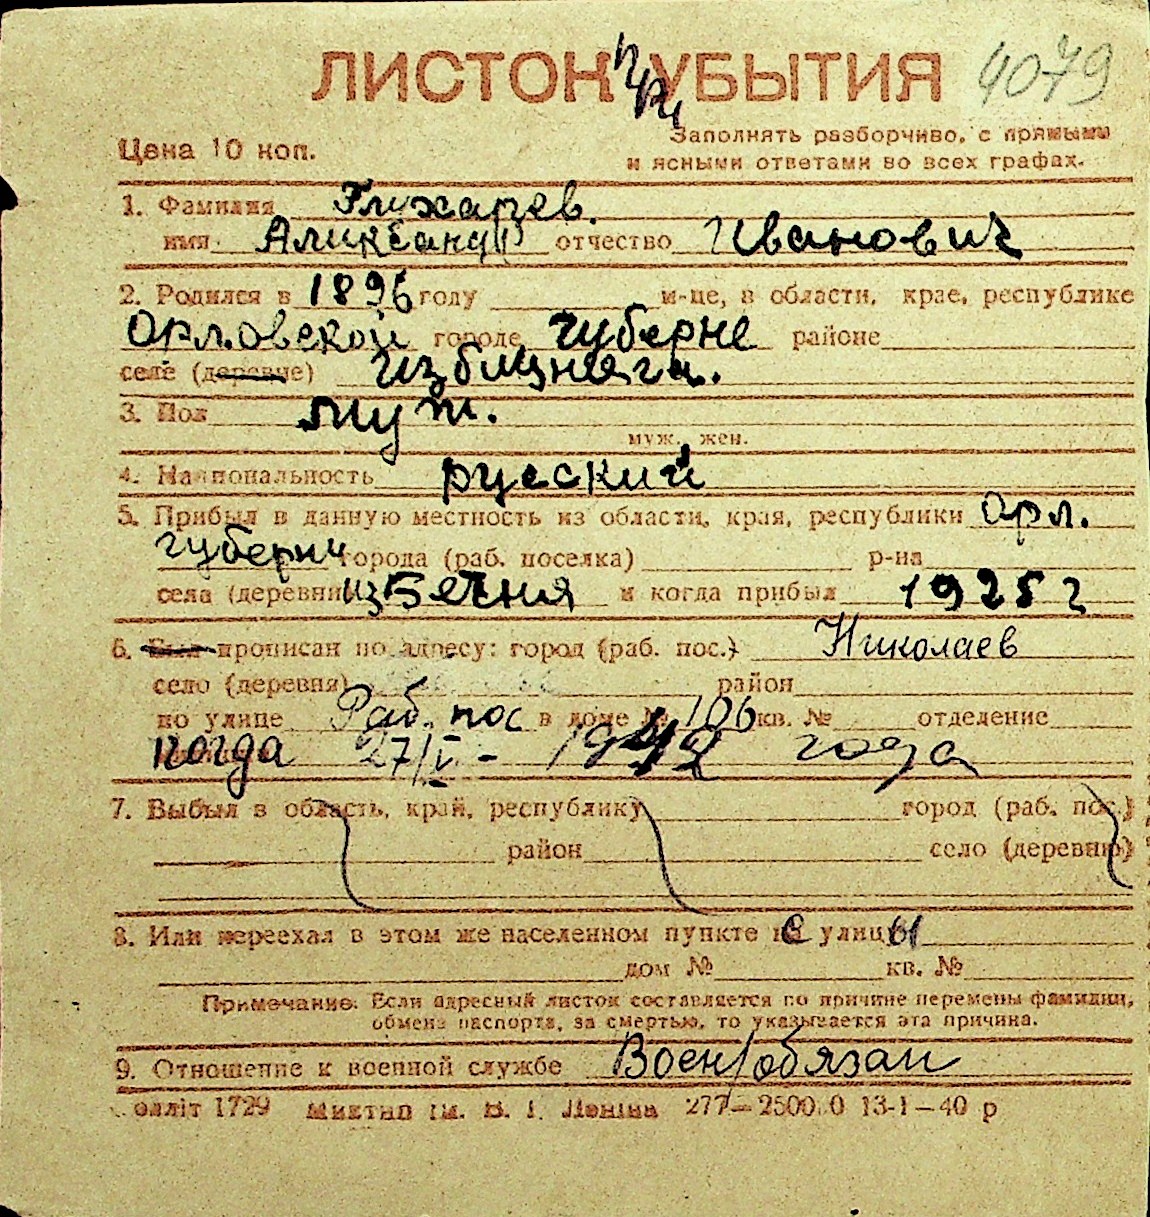 ЛИСТОК УБЫТИЯ
при
4079
Цена 10 коп.
Заполнять разборчиво, с прямыми
и ясными ответами во всех графах.
1. Фамилия Глихарев.
имя Аликсандр отчество Иванович
2. Родился в 1896 году м-це, в области, крае, республике
Орловской городе губерне районе
селе (деревне)
3. Пол муж.
муж. жен.
4. Национальность русский
5. Прибыл в данную местность из области, края, республики Орл.
губерни города (раб. поселка) р-на
села (деревни) и когда прибыл 1925 г
6. Был прописан по адресу: город (раб. пос.) Николаев
село (деревня) район
по улице Раб. пос в доме № 106 кв. № отделение
когда 27/V - 1942 года
7. Выбыл в область, край, республику город (раб. пос.)
район село (деревню)
8. Или переехал в этом же населенном пункте с улицы
дом № кв. №
Примечание. Если адресный листок составляется по причине перемены фамилии,
обмена паспорта, за смертью, то указывается эта причина.
9. Отношение к военной службе Воен/обязан
облліт 1729 Миктип ім. В. І. Леніна 277—2500.0 13-1—40 р